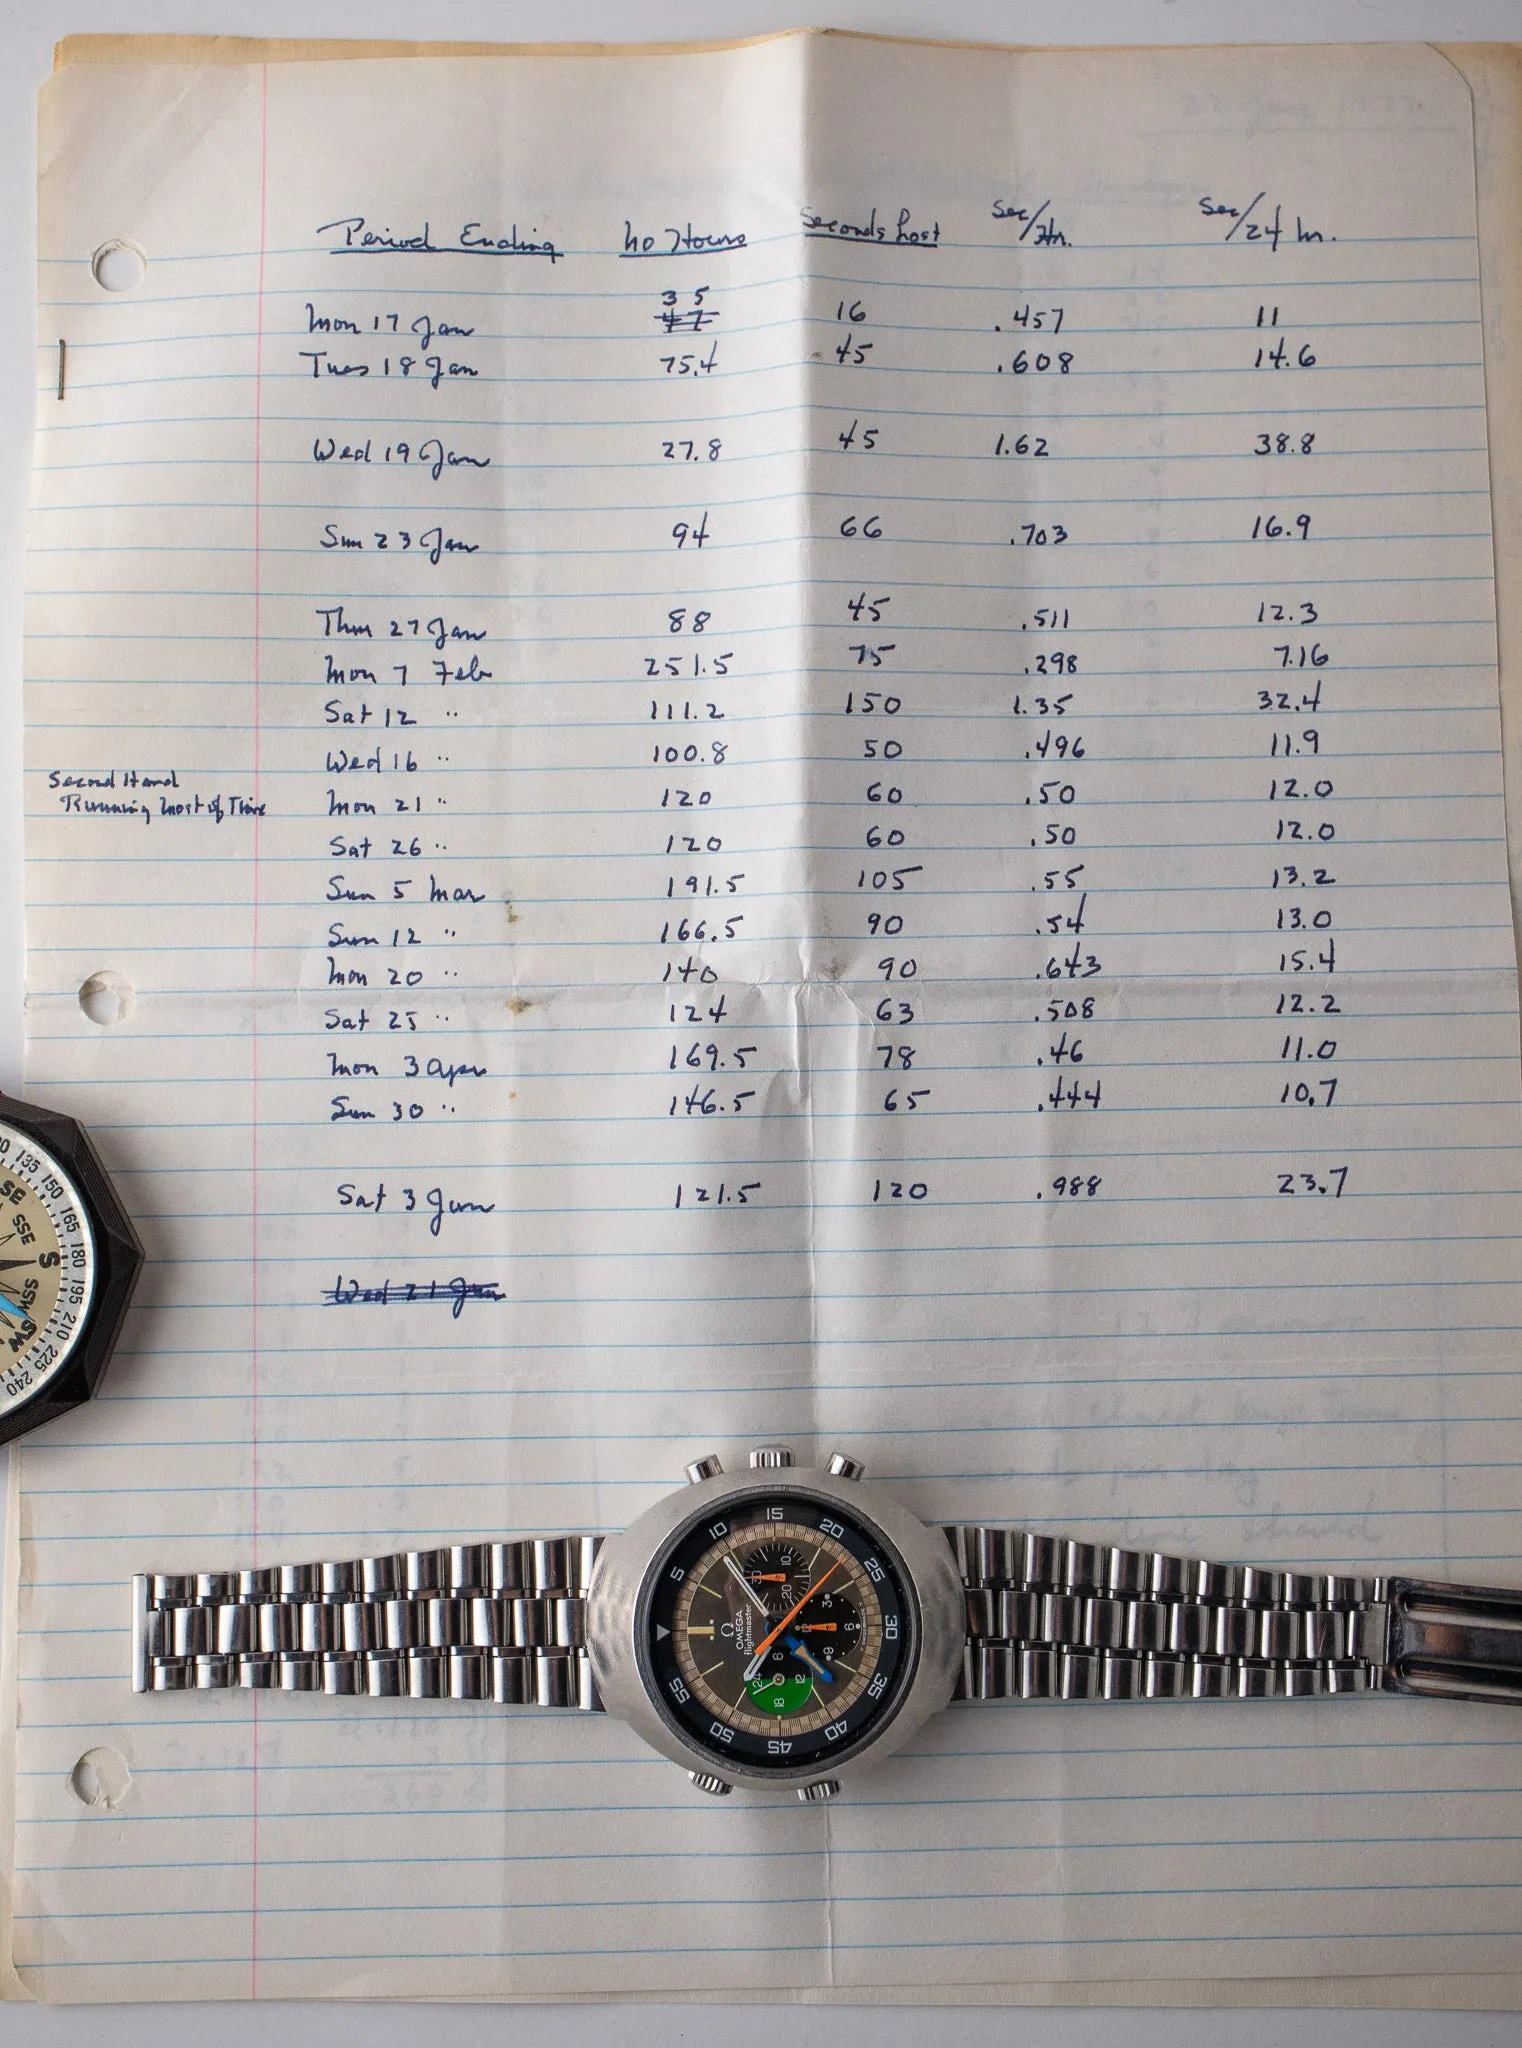 Period Ending no Hours Seconds Lost Sec/Hr. Sec/24 hr.
35
Mon 17 Jan 47 16 .457 11
Tues 18 Jan 75.4 45 .608 14.6
Wed 19 Jan 27.8 45 1.62 38.8
Sun 23 Jan 94 66 .703 16.9
Thur 27 Jan 88 45 .511 12.3
Mon 7 Feb 251.5 75 .298 7.16
Sat 12 " 111.2 150 1.35 32.4
Wed 16 " 100.8 50 .496 11.9
Second Hand
Running most of Time
Mon 21 " 120 60 .50 12.0
Sat 26 " 120 60 .50 12.0
Sun 5 Mar 191.5 105 .55 13.2
Sun 12 " 166.5 90 .54 13.0
Mon 20 " 140 90 .643 15.4
Sat 25 " 124 63 .508 12.2
Mon 3 Apr 169.5 78 .46 11.0
Sun 30 " 146.5 65 .444 10.7
Sat 3 Jun 121.5 120 .988 23.7
Wed 21 Jun
135 150 165 180 195 210 225 240
SE SSE S SSW SW
5 10 15 20 25 30 35 40 45 50 55
Ω
OMEGA
flightmaster
10 20 30
3 6 9 12
6 12 18 24